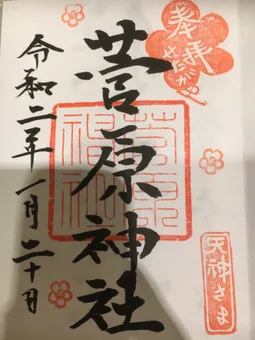 奉拝
天神さま
菅原神社
菅原
神社
令和二年一月二十日